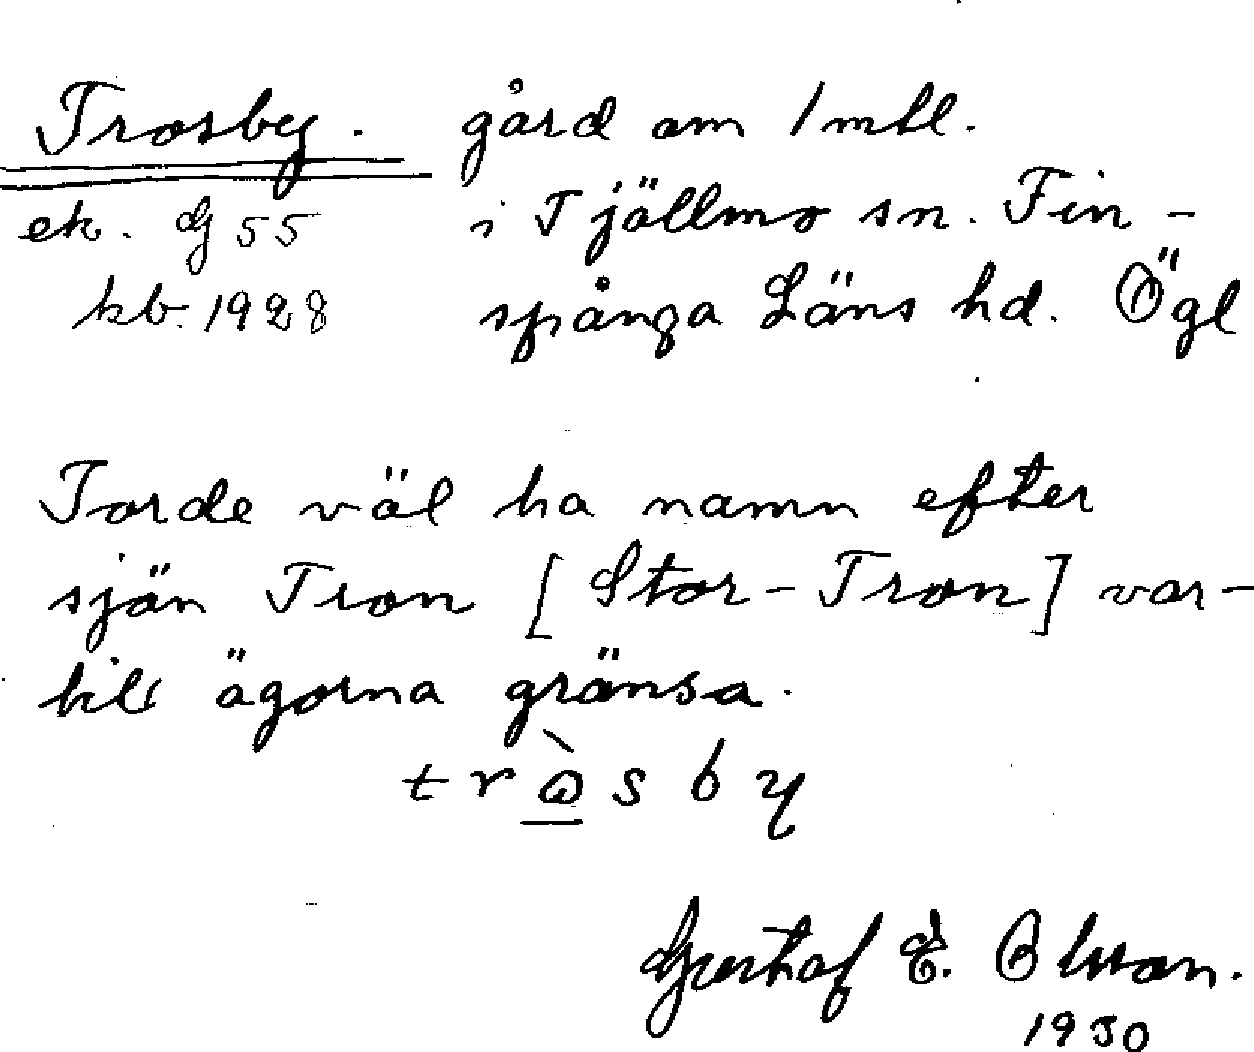 Trosby. gård om 1 mtl.
ek. dg 55 i Tjällmo sn. Fin-
kb. 1928 spånga Läns hd. Ögl
Torde väl ha namn efter
sjön Tron [Stor-Tron] var-
till ägorna gränsa.
tròsby
Gustaf E. Olsson.
1930